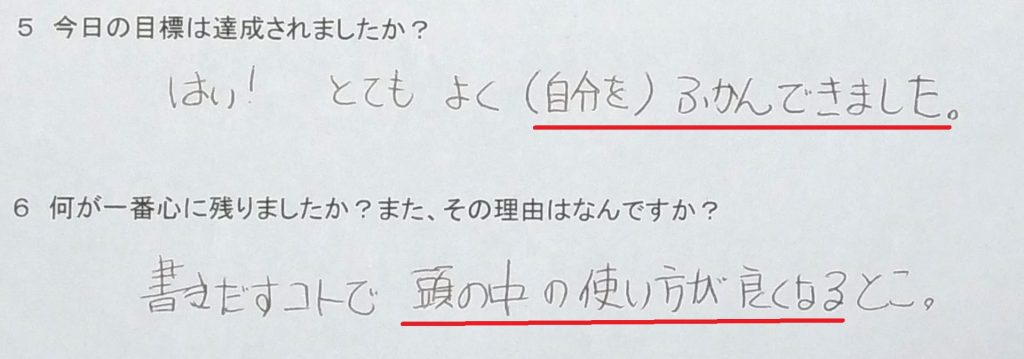 5 今日の目標は達成されましたか？
はい! とても よく (自分を) ふかんできました。
6 何が一番心に残りましたか？また、その理由はなんですか？
書きだすコトで 頭の中の使い方が良くなるとこ。